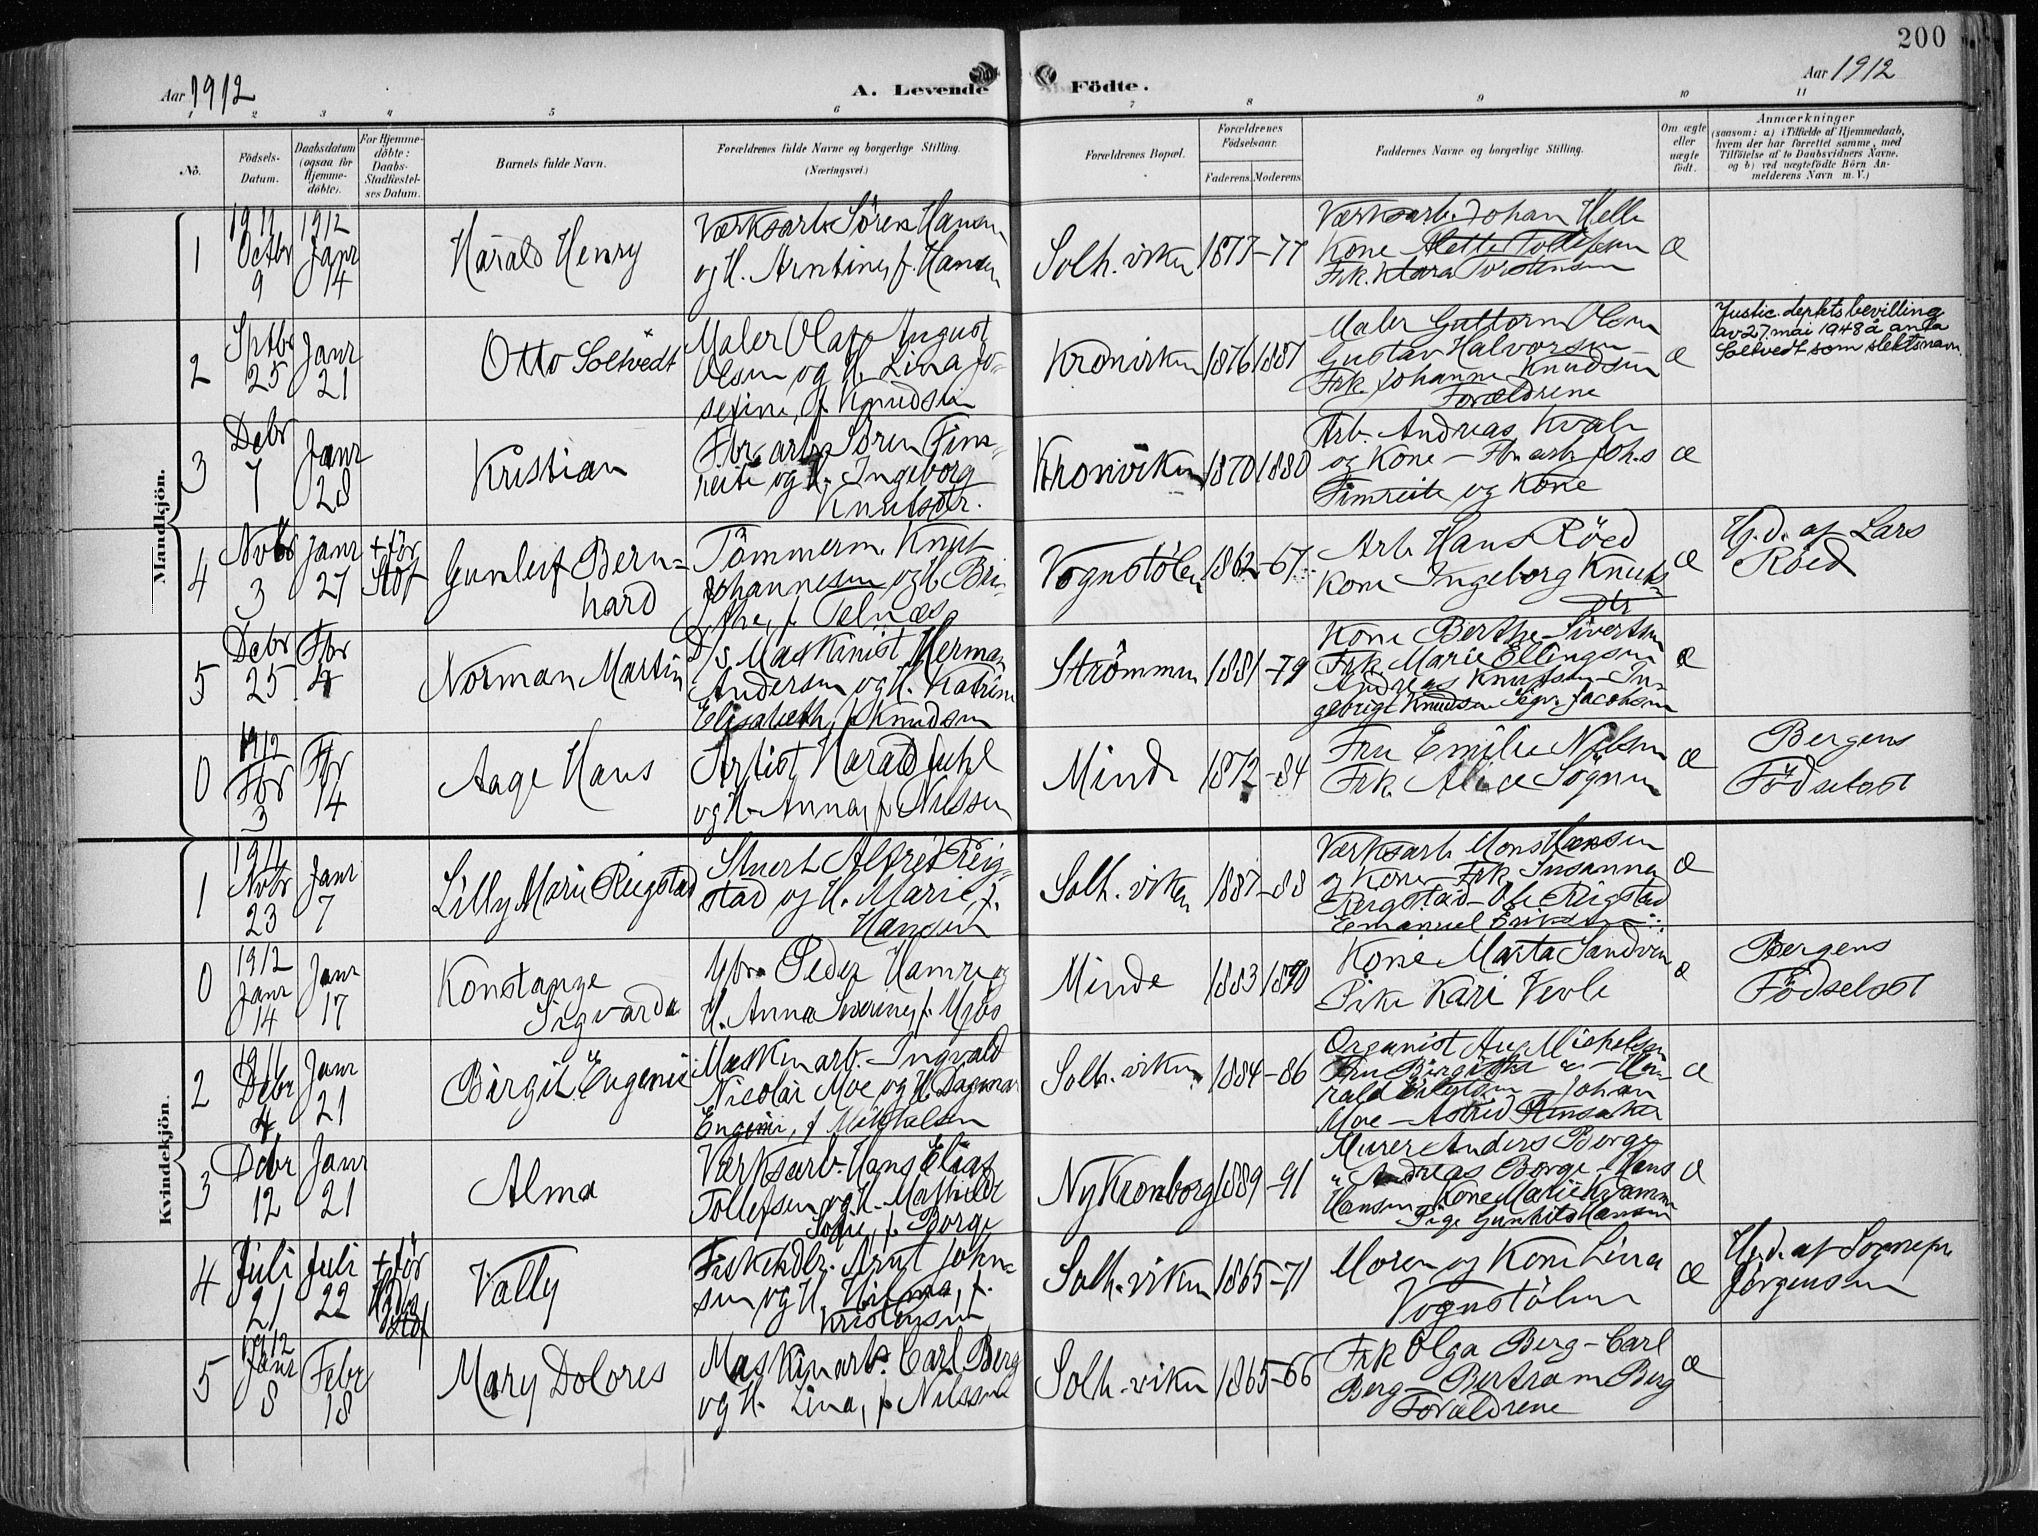 200
Aar 1912
A. Levende Födte.
Aar 1912
1 2 3 4 5 6 7 8 9 10 11
No.
Födsels-
Datum.
Daabsdatum
(ogsaa for
Hjemme-
döbte).
For Hjemme-
döbte:
Daabs-
Stadfæstel-
ses Datum.
Barnets fulde Navn.
Forældrenes fulde Navne og borgerlige Stilling.
(Næringsvei.)
Forældrenes Bopæl.
Forældrenes
Födselsaar.
Faderens. Moderens.
Faddernes Navne og borgerlige Stilling.
Om ægte
eller
uægte
födt.
Anmærkninger
(saasom: a) i Tilfælde af Hjemmedaab,
hvem der har forrettet samme, med
Tilföielse af to Daabsvidners Navne.
og b) ved uægtefödte Börn An-
melderens Navn m. V.)
Mandkjön.
1
1911
Octbr
9
1912
Janr
14
Harald Henry
Værksarb. Sören Hansen
og H. Arntine, f. Hansen
Solh. viken
1877-77
Værksarb. Johan Helle
Kone Mette Tollefsen
Frk. Klara Torstensen
æ
2
Sptbr
25
Janr
21
Otto Soltvedt
Maler Olaf August
Olsen og H. Lina Jo-
sefine, f. Knudsen
Kronviken
1876 1887
Maler Guttorm Olsen
Gustav Halvorsen
Frk. Johanne Knudsen
Forældrene
æ
Justic. deptets bevilling
av 27 mai 1948 å anta
Soltvedt som slektsnavn.
3
Debr
7
Janr
28
Kristian
Fbr. arb. Sören Fim-
reite og H. Ingeborg
Knutsdtr.
Kronviken
1870 1880
Arb. Andreas Kvale
og Kone - Fbr. arb. Johs
Fimreite og Kone
æ
4
Nvbr
3
Janr
27
+ för
Stdf
Gunleif Bern-
hard
Tömmerm. Knut
Johannesen og H. Bri-
the, f. Telnæs
Vognstölen
1862-67
Arb. Hans Röed
Kone Ingeborg Knuts-
dtr
æ
Hj.d. af Lars
Röed
5
Debr
25
Fbr
4
Norman Martin
D/s. Maskinist Herman
Andersen og H. Katrine
Elisabeth, f. Knudsen
Strömmen
1881-79
Kone Berthe Sivertsen
Frk. Marie Ellingsen
Andreas Knutsen - In-
gebrigt Knudsen Sigv. Jacobsen
æ
0
1912
Fbr
3
Fbr
14
Aage Hans
Artist Harald Juhl
og H. Anna, f. Nilssen
Minde
1872-84
Fru Emilie Nilsen
Frk. Alice Sögnen
æ
Bergens
Födselsst
Kvindekjön.
1
1911
Nvbr
23
Janr
7
Lilly Marie Reigstad
Stuert Alfred Reig-
stad og H. Marie, f.
Hansen
Solh. viken
1887-88
Værksarb. Mons Hansen
og Kone - Frk. Susanna
Reigstad - Ole Reigstad
Emanuel Eriksen
æ
0
1912
Janr
14
Janr
17
Konstanze
Sigvarda
Peder Hamre og
H. Anna Severine, f. Mjös
Minde
1883 1890
Kone Marta Sandven
Pike Kari Vevle
æ
Bergens
Födselsst
2
1911
Debr
4
Janr
21
Birgit Eugenie
Maskinarb. Ingvald
Nicolai Moe og H. Dagmar
Eugenie, f. Mikkalsen
Solh. viken
1884-86
Organist Michelsen
Fru Birgitte - Ha-
rald Johan
Moe - Astrid
æ
3
Debr
12
Janr
21
Alma
Værksarb. Hans Elias
Tollefsen og H. Mathilde
Sofie, f. Borge
Ny Kronborg
1889-91
Murer Anders Borge
" Andreas Borge - Hans
Hansen Kone Marie Kvamme
Pige Gunhild Hansen
æ
4
Juli
21
Juli
22
+ för
Hjds
Stdf
Vally
Fiskehdlr. Arnt John-
sen, og H. Hilma, f.
Kristensen
Solh. viken
1865-71
Moren og Kone Lina
Vognstölen
æ
Hj.d. af Sognepr
Jörgensen
5
1912
Janr
8
Febr
18
Mary Dolores
Maskinarb. Carl Berg
og H. Lina, f. Nilssen
Solh. viken
1865-66
Frk Olga Berg - Carl
Berg - Bertram Berg
Forældrene
æ